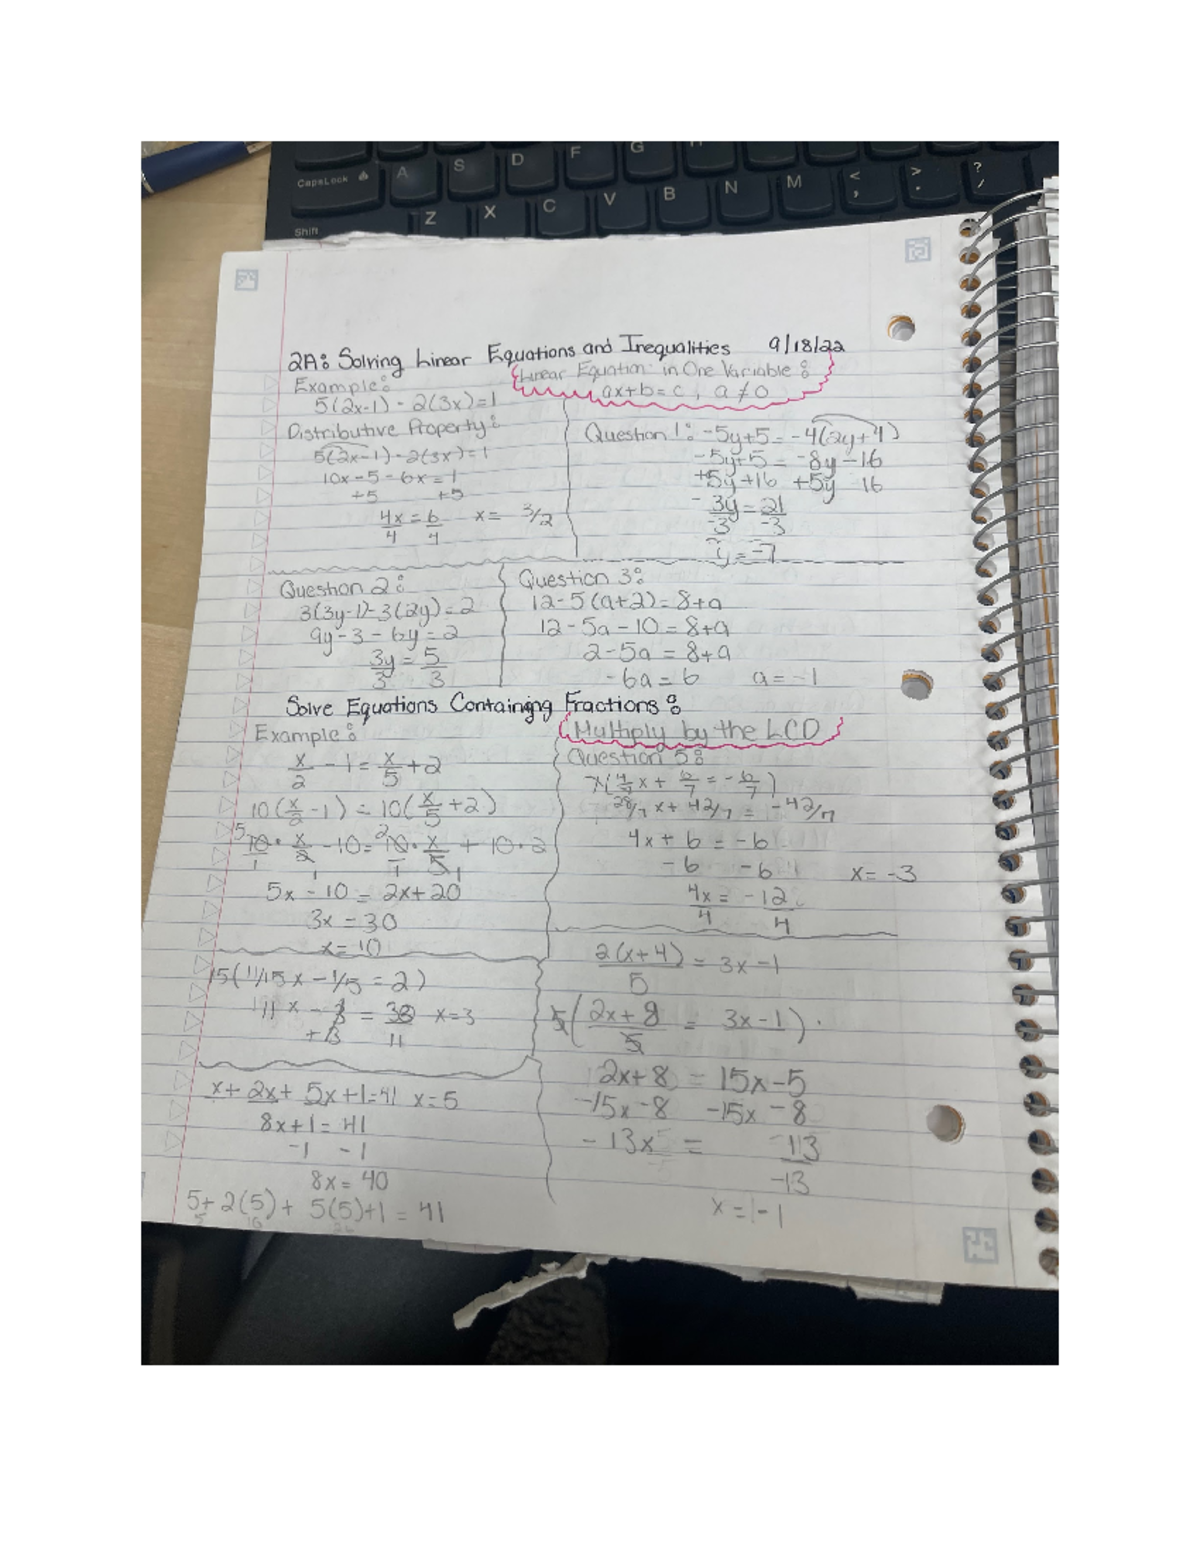 CapsLock A S D F G
Shift Z X C V B N M < , > . ? /
2A: Solving Linear Equations and Inequalities 9/18/22
Linear Equation in One Variable:
ax+b=c, a≠0
Example:
5(2x-1) - 2(3x)=1
Distributive Property:
5(2x-1)-2(3x)=1
10x-5-6x=1
+5 +5
4x=6 x= 3/2
4 4
Question 1: -5y+5=-4(2y+4)
-5y+5 = -8y-16
+5y+16 +5y 16
-3y=21
-3 -3
y=-7
Question 2:
3(3y-1)-3(2y)=2
9y-3-6y=2
3y=5
3 3
Question 3:
12-5(a+2)=8+a
12-5a-10=8+a
2-5a=8+a
-6a=6 a=-1
Solve Equations Containging Fractions:
Multiply by the LCD
Example:
x/2 -1= x/5 +2
10(x/2 -1)=10(x/5 +2)
5 10/1 · x/2 -10= 2 10/1 · x/5 + 10·2
1 1
5x-10=2x+20
3x=30
x=10
Question 5:
7(4/7 x + 6/7 = -6/7)
28/7 x + 42/7 = -42/7
4x+6=-6
-6 -6 x=-3
4x=-12
4 4
15(11/15 x - 1/15 = 2)
11x - = 33 x=3
11
x+2x+5x+1=41 x=5
8x+1=41
-1 -1
8x=40
5+2(5)+5(5)+1=41
5 10
2(x+4)/5 = 3x-1
5(2x+8/5 = 3x-1).
2x+8=15x-5
-15x-8 -15x-8
-13x = -13
-13
x=